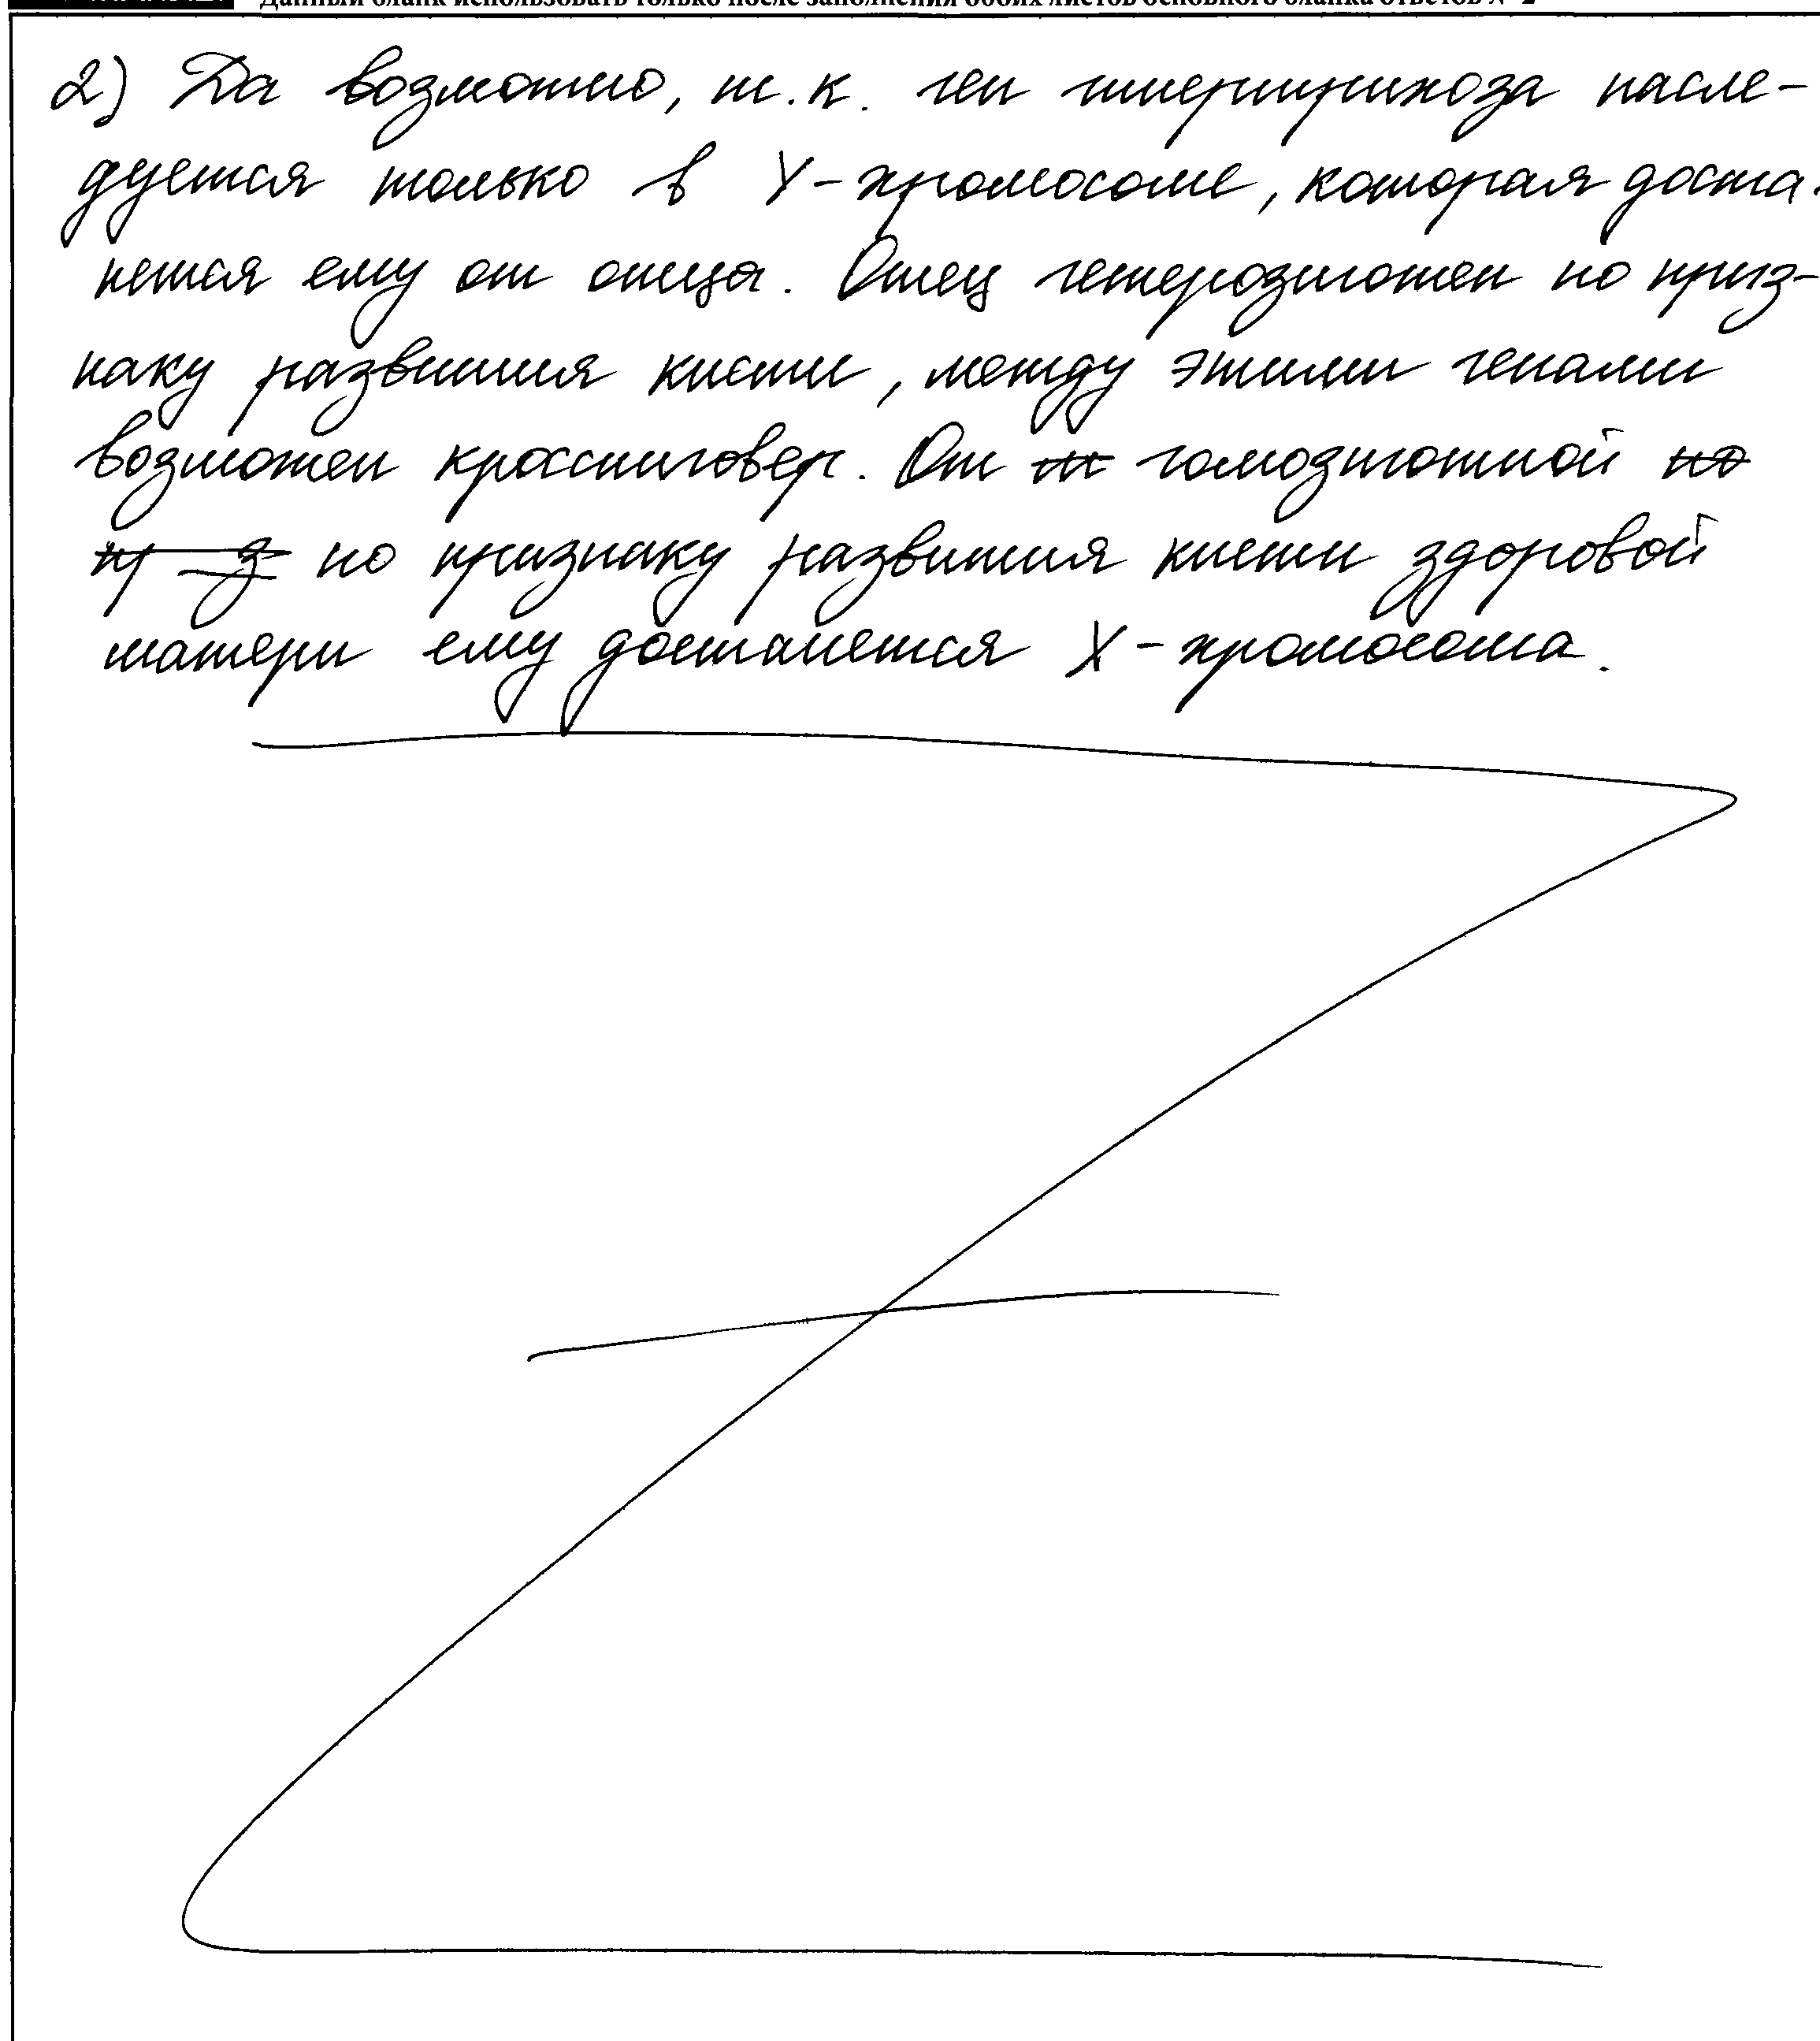 Данный бланк использовать только после заполнения обоих листов основного бланка ответов № 2
2) Да возможно, т.к. ген гипертрихоза насле-
дуется только в Y-хромосоме, которая доста-
нется ему от отца. Отец гетерозиготен по приз-
наку развития кисти, между этими генами
возможен кроссинговер. От гомозиготной по
по признаку развития кисти здоровой
матери ему достанется X-хромосома.